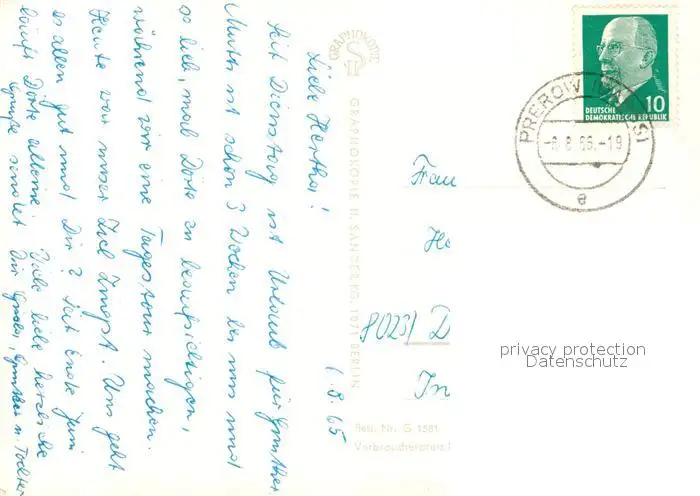 6.8.65
Liebe Hertha!
Seit Dienstag ist Urlaub für Günther
Mutti ist schon 3 Wochen bei uns und
so lieb, mal Dörte zu beaufsichtigen,
während wir eine Tagestour machen.
Heute war unser Ziel Zingst. Uns geht
es allen gut und Dir? Seit Ende Juni
läuft Dörte alleine. Viele liebe herzliche
Grüße sendet Dir Günther u. Tochter
GRAPHOKOPIE
GRAPHOKOPIE H. SANDER KG, 1071 BERLIN
Best. Nr. G 1581
Verbraucherpreis
DEUTSCHE
DEMOKRATISCHE REPUBLIK
10
PREROW
-6.8.65.-19
e
Frau
He
8023 D
In
privacy protection
Datenschutz